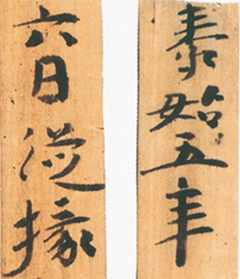 泰始五年
六日從掾